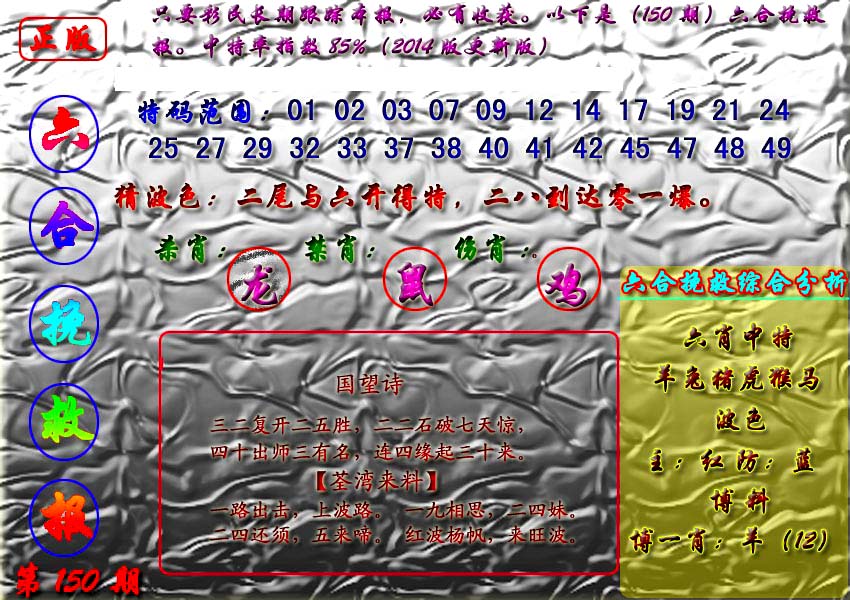 正版
只要彩民长期跟踪本报，必有收获。以下是（150 期）六合挽救
报。中特率指数 85%（2014 版更新版）
六合挽救报
第 150 期
特码范围：01 02 03 07 09 12 14 17 19 21 24
25 27 29 32 33 37 38 40 41 42 45 47 48 49
猜波色：二尾与六开得特，二八到达零一爆。
杀肖：龙 禁肖：鼠 伤肖：鸡。
国望诗
三二复开二五胜，二二石破七天惊，
四十出师三有名，连四缘起三十来。
【荃湾来料】
一路出击，上波路。 一九相思，三四妹。
二四还须，五来啼。 红波杨帆，来旺波。
六合挽救综合分析
六肖中特
羊兔猪虎猴马
波色
主：红防：蓝
博料
博一肖：羊（12）